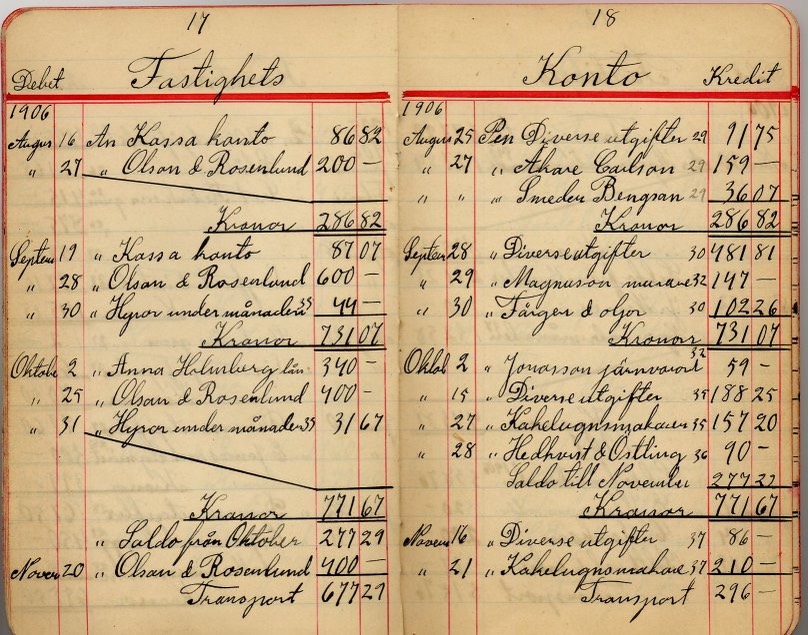 17
Debet Fastighets
1906
August 16 An Kassa konto 86 82
" 27 " Olson & Rosenlund 200 —
Kronor 286 82
Septem 19 " Kassa konto 87 07
" 28 " Olson & Rosenlund 600 —
" 30 " Hyror under månaden 35 44 —
Kronor 731 07
Oktobe 2 " Anna Holmberg lån 340 —
" 25 " Olson & Rosenlund 400 —
" 31 " Hyror under månaden 35 31 67
Kronor 771 67
" Saldo från Oktober 277 29
Novem 20 " Olson & Rosenlund 400 —
Transport 677 29
18
Konto Kredit
1906
August 25 Pen Diverse utgifter 29 91 75
" 27 " Åkare Carlson 29 159 —
" " " Smeden Bengson 29 36 07
Kronor 286 82
Septem 28 " Diverse utgifter 30 481 81
" 29 " Magnuson murare 32 147 —
" 30 " Färger & oljor 30 102 26
Kronor 731 07
Oktob 2 " Jonasson järnvaror 32 59 —
" 15 " Diverse utgifter 35 188 25
" 27 " Kakelugnsmakaren 35 157 20
" 28 " Hedkvist & Östling 36 90 —
Saldo till November 277 22
Kronor 771 67
Novem 16 " Diverse utgifter 37 86 —
" 21 " Kakelugnsmakare 37 210 —
Transport 296 —